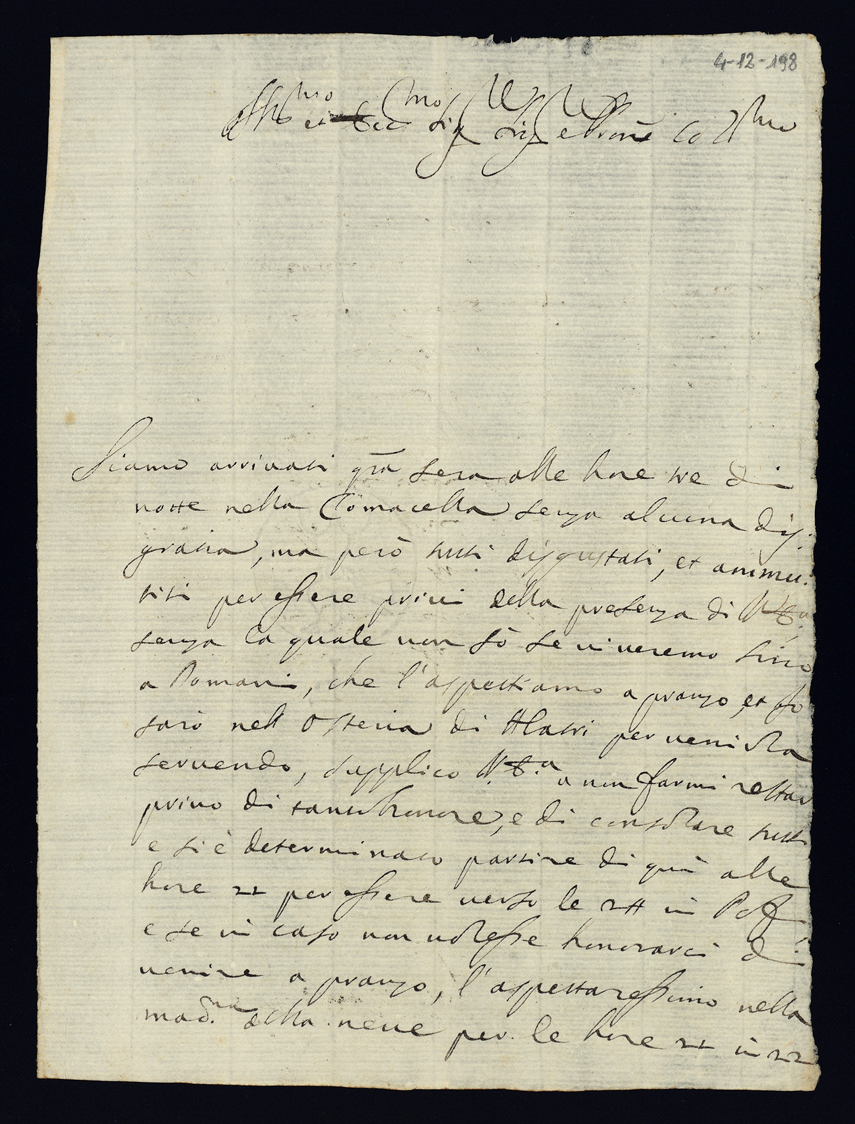 4-12-198
Ill.mo et Ecc.mo Sig.r Sig.r e Prōne Col.mo
Siamo arrivati q̃ta sera alle hore tre di
notte nella Tomacella senza alcuna dis-
gratia, ma però tutti disgustati, et ammu-
titi per essere privi della presenza di V.E.a
senza la quale non sò se viveremo sino
a Domani, che l'aspettiamo a pranzo, et Io
sarò nell Osteria di Alatri per venirla
servendo, supplico V.E.a a non farmi restar
privo di tanto honore, e di consolare tutti
e si è determinato partire di quì alle
hore 21 per essere verso le 24 in
e se in caso non volesse honorarci di
venire a pranzo, l'aspettaressimo nella
mad.na della neve per le hore 21 in 22